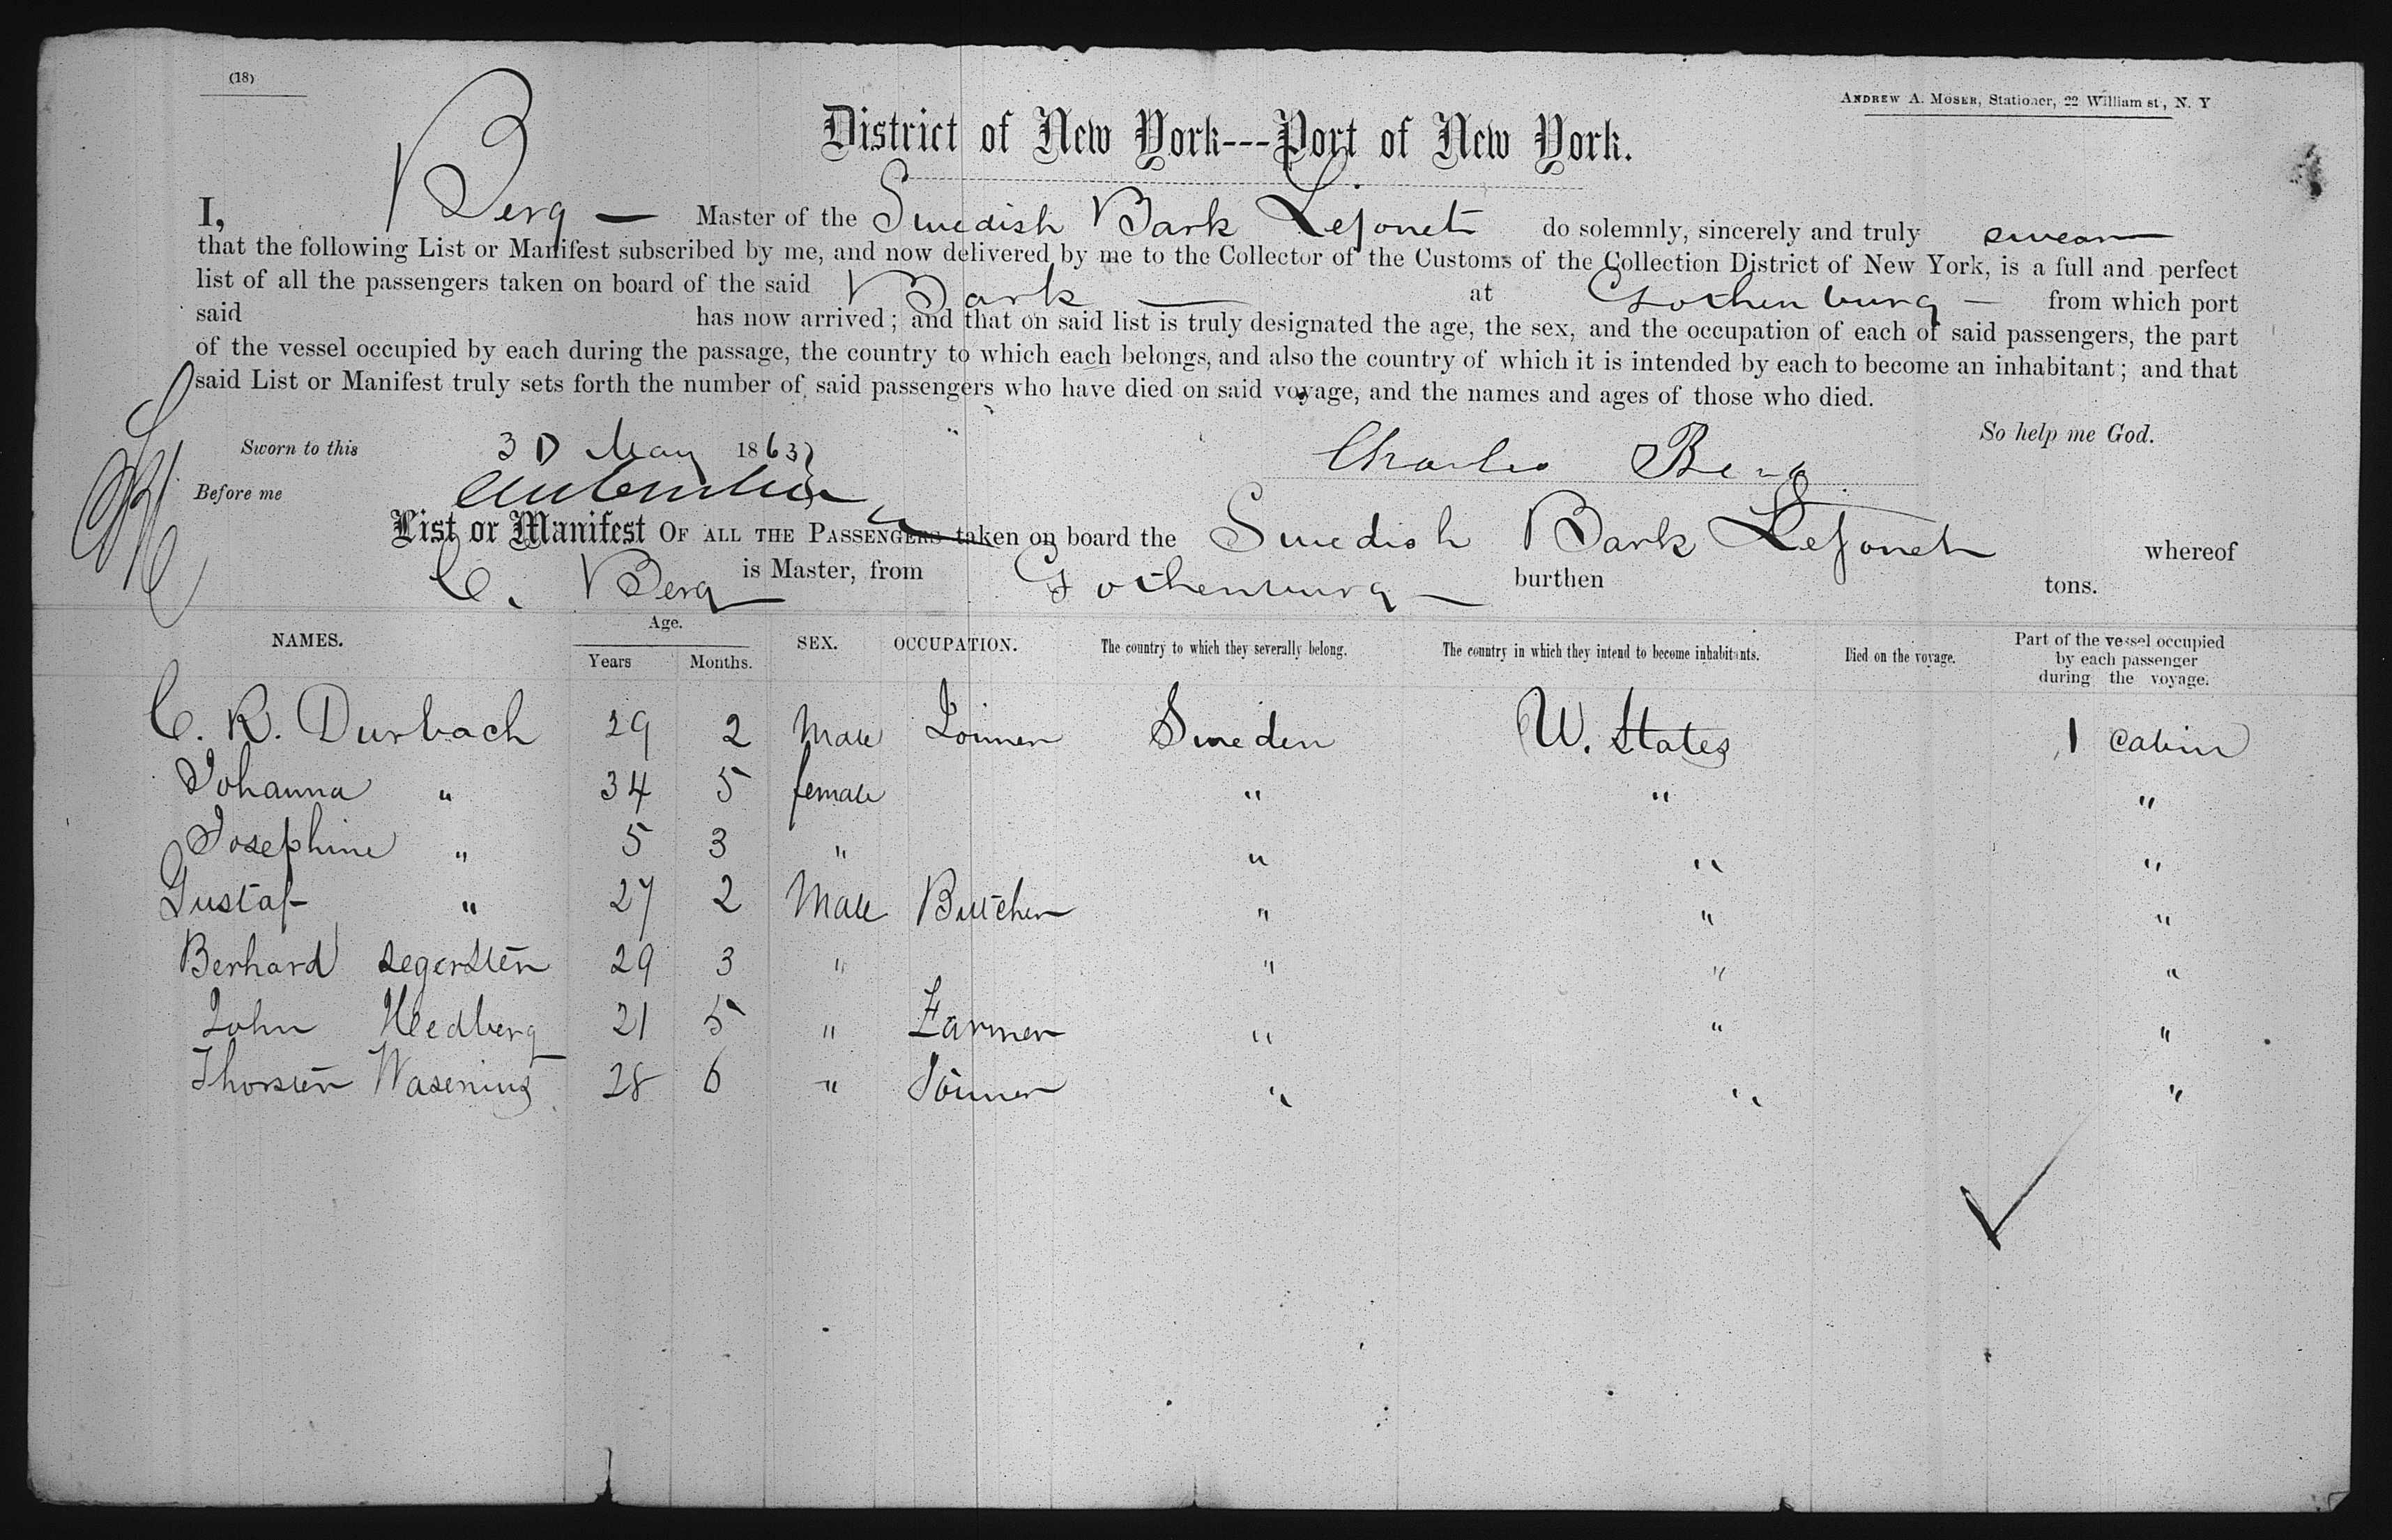 (18)
ANDREW A. MOSER, Stationer, 22 William st, N. Y
District of New York---Port of New York.
I, Berg — Master of the Swedish Bark Lejonet do solemnly, sincerely and truly swear
that the following List or Manifest subscribed by me, and now delivered by me to the Collector of the Customs of the Collection District of New York, is a full and perfect
list of all the passengers taken on board of the said Bark — at Gothenburg — from which port
said has now arrived; and that on said list is truly designated the age, the sex, and the occupation of each of said passengers, the part
of the vessel occupied by each during the passage, the country to which each belongs, and also the country of which it is intended by each to become an inhabitant; and that
said List or Manifest truly sets forth the number of said passengers who have died on said voyage, and the names and ages of those who died.
So help me God.
Sworn to this 30 May 1863 Charles Berg
Before me
List or Manifest OF ALL THE PASSENGERS taken on board the Swedish Bark Lejonet whereof
C. Berg is Master, from Gothenburg — burthen tons.
NAMES. Age. Years Months. SEX. OCCUPATION. The country to which they severally belong. The country in which they intend to become inhabitants. Died on the voyage. Part of the vessel occupied by each passenger during the voyage.
C. R. Durbach 29 2 Male Joiner Sweden U. States 1 Cabin
Johanna " 34 5 female " " "
Josephine " 5 3 " " " "
Gustaf " 27 2 Male Butcher " " "
Berhard Segersten 29 3 " " " "
John Hedberg 21 5 " Farmer " " "
Thorsten Wasenius 28 6 " Joiner " " "